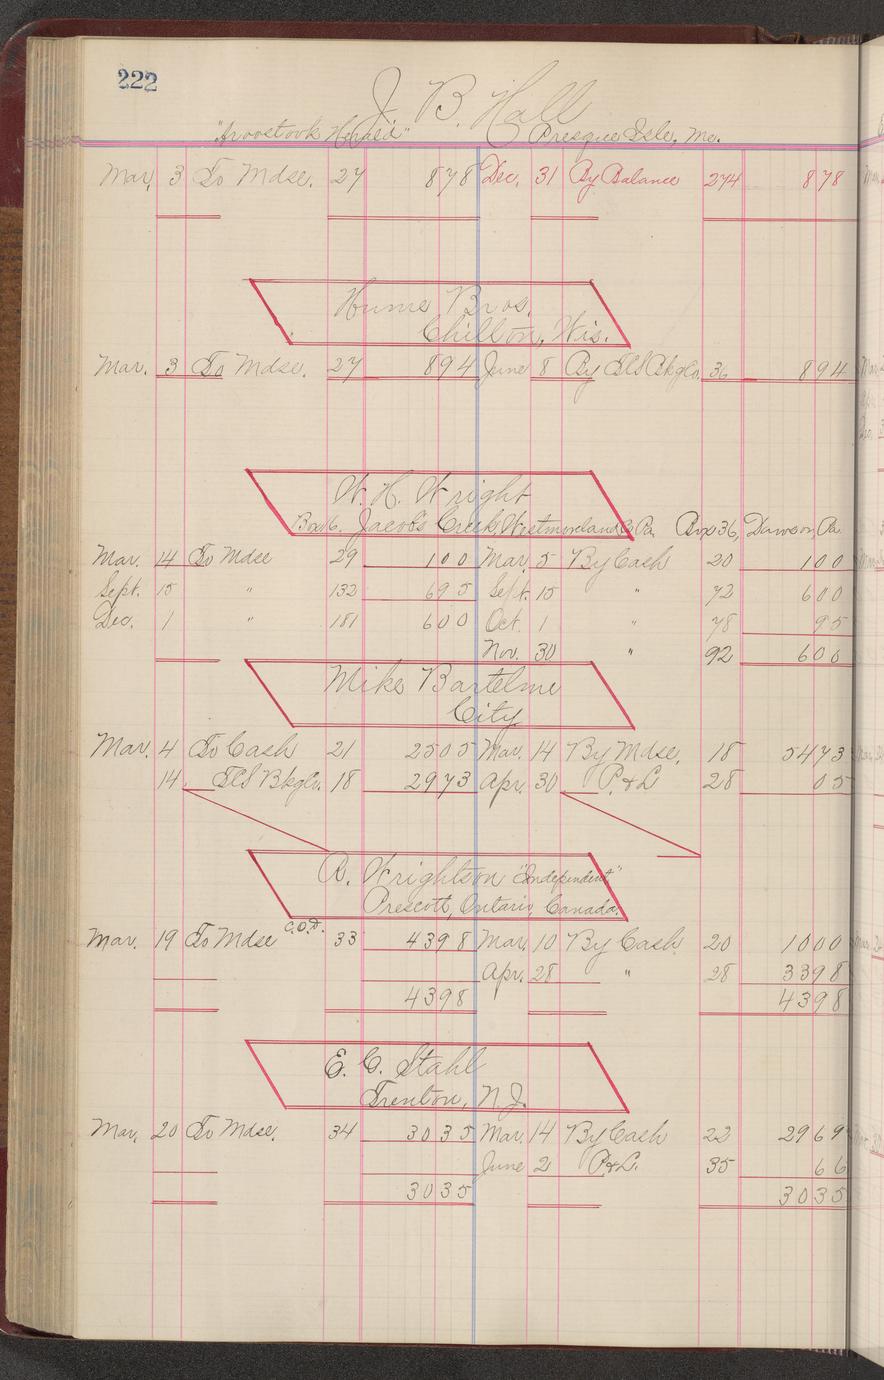 222
J. B. Hall
"Aroostook Herald" Presque Isle, Me.
Mar. 3 To Mdse. 27 878 Dec. 31 By Balance 274 878
Hume Bros.
Chilton, Wis.
Mar. 3 To Mdse. 27 894 June 8 By Bkg Co. 36 894
W. H. Wright
Box 16. Jacob's Creek, Westmoreland Co. Pa. Box 36, Dawson, Pa.
Mar. 14 To Mdse 29 100 Mar. 5 By Cash 20 100
Sept. 15 " 132 695 Sept. 15 " 72 600
Dec. 1 " 181 600 Oct. 1 " 78 95
Nov. 30 " 92 606
Mike Bartelme
City
Mar. 4 To Cash 21 2505 Mar. 14 By Mdse. 18 5473
14 Bkg Co. 18 2973 Apr. 30 P. & L 28 05
R. Wrightson "Independent"
Prescott, Ontario, Canada.
Mar. 19 To Mdse C.O.D. 33 4398 Mar. 10 By Cash 20 1000
Apr. 28 " 28 3398
4398 4398
E. C. Stahl
Trenton, N.J.
Mar. 20 To Mdse. 34 3035 Mar. 14 By Cash 22 2969
June 2 P. & L. 35 66
3035 3035